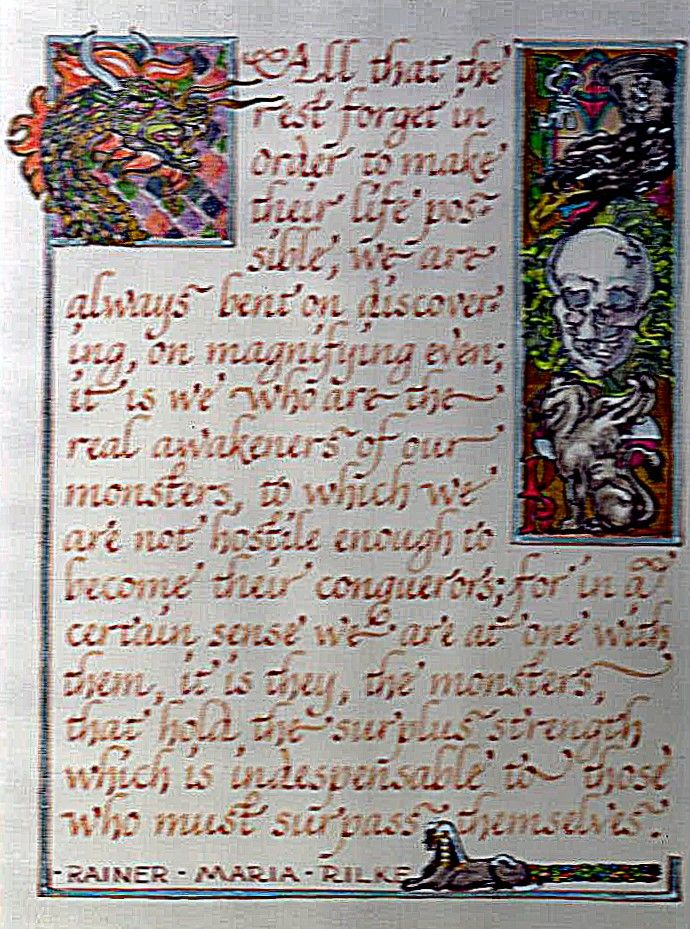 All that the
rest forget in
order to make
their life pos-
sible, we are
always bent on discover-
ing, on magnifying even;
it is we who are the
real awakeners of our
monsters, to which we
are not hostile enough to
become their conquerors; for in a
certain sense we are at one with
them, it is they, the monsters,
that hold the surplus strength
which is indespensable to those
who must surpass themselves.
-RAINER-MARIA-RILKE